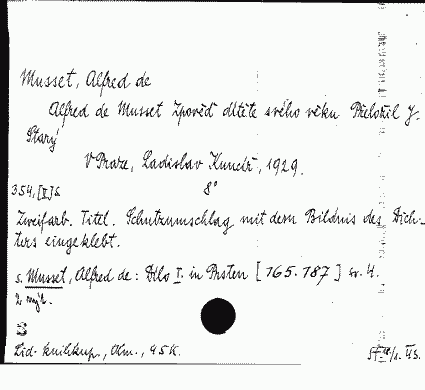 Musset, Alfred de
Alfred de Musset Zpověď dítěte svého věku Přeložil J.
Starý
V Praze, Ladislav Kuncíř, 1929.
354, [II] S. 8°
Zweifarb. Titel. Schutzumschlag mit dem Bildnis des Dich-
ters eingeklebt.
s. Musset, Alfred de: Dílo I. in Prsten [165.187] sv. 4.
2
Lid. knihkup., Olm., 45K.